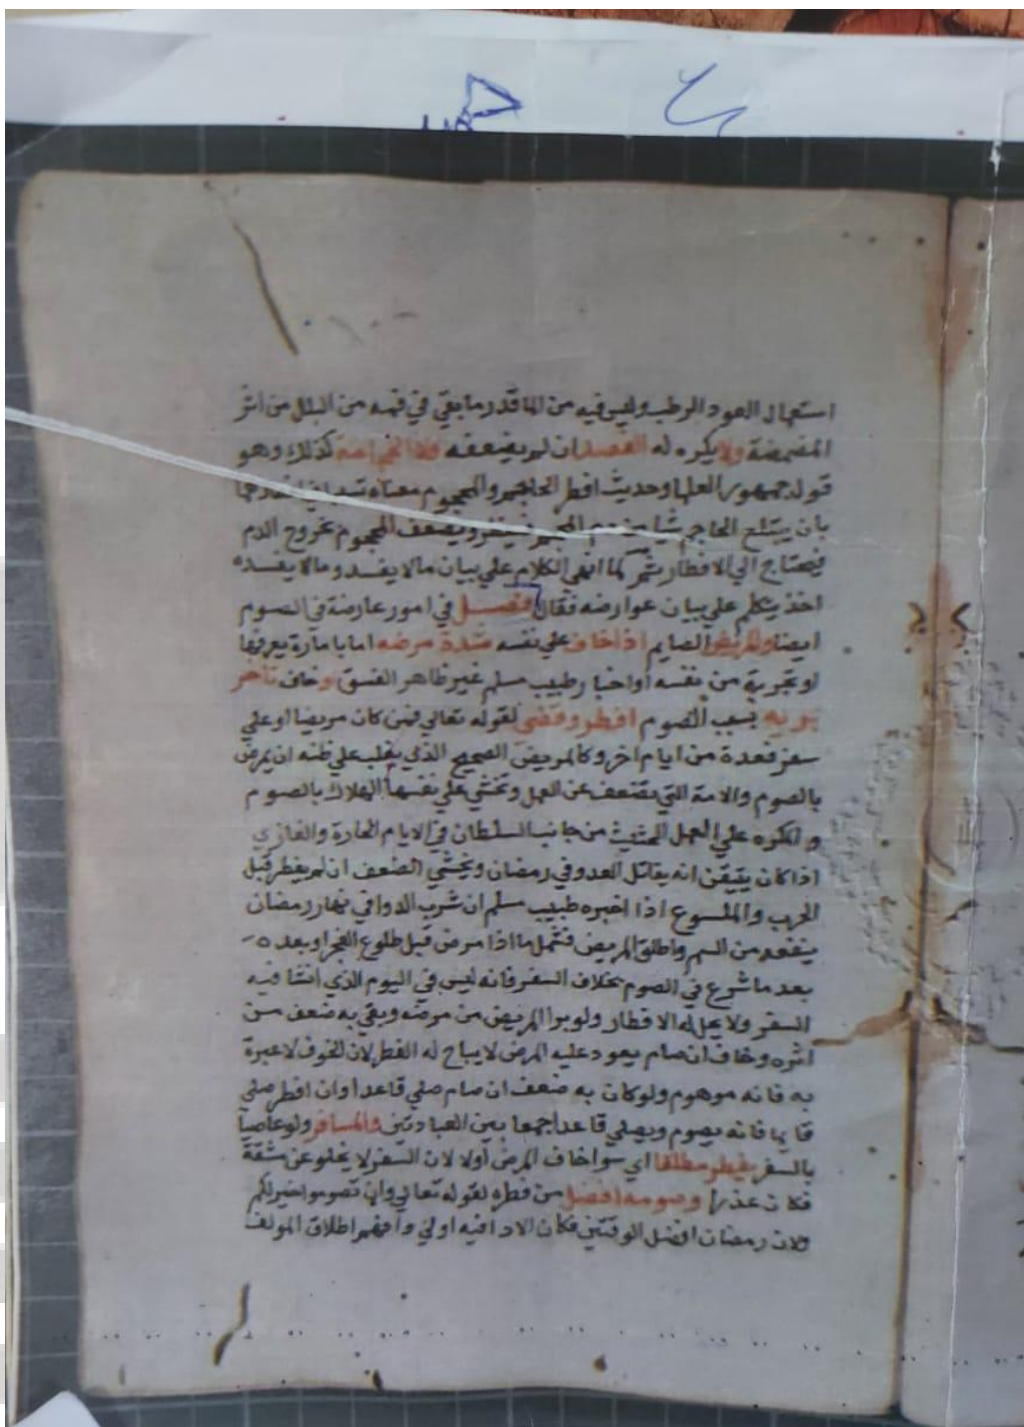 استعمال العود الرطب وليس فيه من الما قدر ما بقي في فمه من البلل من اثر
المضمضة ولا يكره له الفصد ان لم يضعفه ولا الحجامة كذلك وهو
قول جمهور العلما وحديث افطر الحاجم والمحجوم معناه
بان يبتلع الحاجم شيا من دم المحجوم ويضعف المحجوم بخروج الدم
فيحتاج الي الافطار ثم لما انهي الكلام علي بيان ما لا يفسد وما لا يفسده
اخذ يتكلم علي بيان عوارضه فقال فصل في امور عارضة في الصوم
ايضا والمريض الصايم اذا خاف علي نفسه شدة مرضه اما بامارة يعرفها
او تجربة من نفسه او اخبار طبيب مسلم غير ظاهر الفسق او خاف تاخر
بريه بسبب الصوم افطر وقضي لقوله تعالي فمن كان مريضا او علي
سفر فعدة من ايام اخر وكالمريض الصحيح الذي يغلب علي ظنه ان يمرض
بالصوم والامة التي تضعف عن العمل وتخشي علي نفسها الهلاك بالصوم
والمكره علي العمل الحثيث من جانب السلطان في الايام الحارة والغازي
اذا كان يتيقن انه يقاتل العدو في رمضان ويخشي الضعف ان لم يفطر قبل
الحرب والملسوع اذا اخبره طبيب مسلم ان شرب الدوا في نهار رمضان
ينفعه من السم واطلق المريض فشمل ما اذا مرض قبل طلوع الفجر او بعده
بعد ما شرع في الصوم بخلاف السفر فانه ليس في اليوم الذي انشا فيه
السفر ولا يحل له الافطار ولو برا المريض من مرضه وبقي به ضعف من
اثره وخاف ان صام يعود عليه المرض لا يباح له الفطر لان الخوف لا عبرة
به فانه موهوم ولو كان به ضعف ان صام صلي قاعدا وان افطر صلي
قايما فانه يصوم ويصلي قاعدا جمعا بين العبادتين والمسافر ولو عاصيا
بالسفر يفطر مطلقا اي سوا خاف المرض اولا لان السفر لا يخلو عن مشقة
فكان عذرا وصومه افضل من فطره لقوله تعالي وان تصوموا خير لكم
ولان رمضان افضل الوقتين فكان الادا فيه اولي وافهم اطلاق المولف